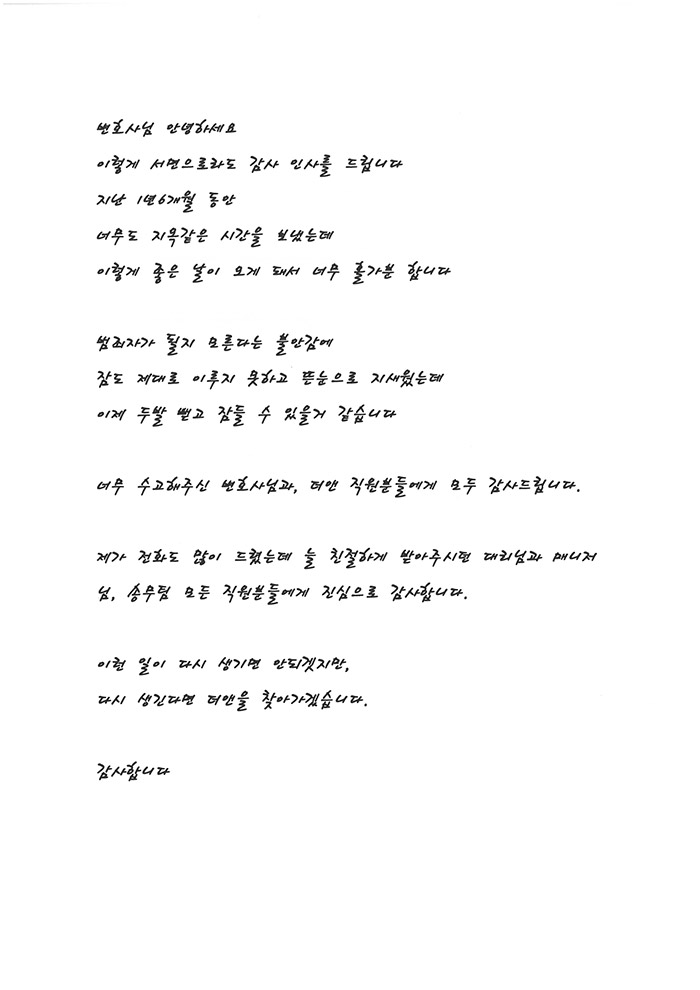 변호사님 안녕하세요
이렇게 서면으로라도 감사 인사를 드립니다
지난 1년6개월 동안
너무도 지옥같은 시간을 보냈는데
이렇게 좋은 날이 오게 돼서 너무 홀가분 합니다
범죄자가 될지 모른다는 불안감에
잠도 제대로 이루지 못하고 뜬눈으로 지새웠는데
이제 두발 뻗고 잠들 수 있을거 같습니다
너무 수고해주신 변호사님과, 더앤 직원분들에게 모두 감사드립니다.
제가 전화도 많이 드렸는데 늘 친절하게 받아주시던 대리님과 매니저
님, 송무팀 모든 직원분들에게 진심으로 감사합니다.
이런 일이 다시 생기면 안되겠지만,
다시 생긴다면 더앤을 찾아가겠습니다.
감사합니다